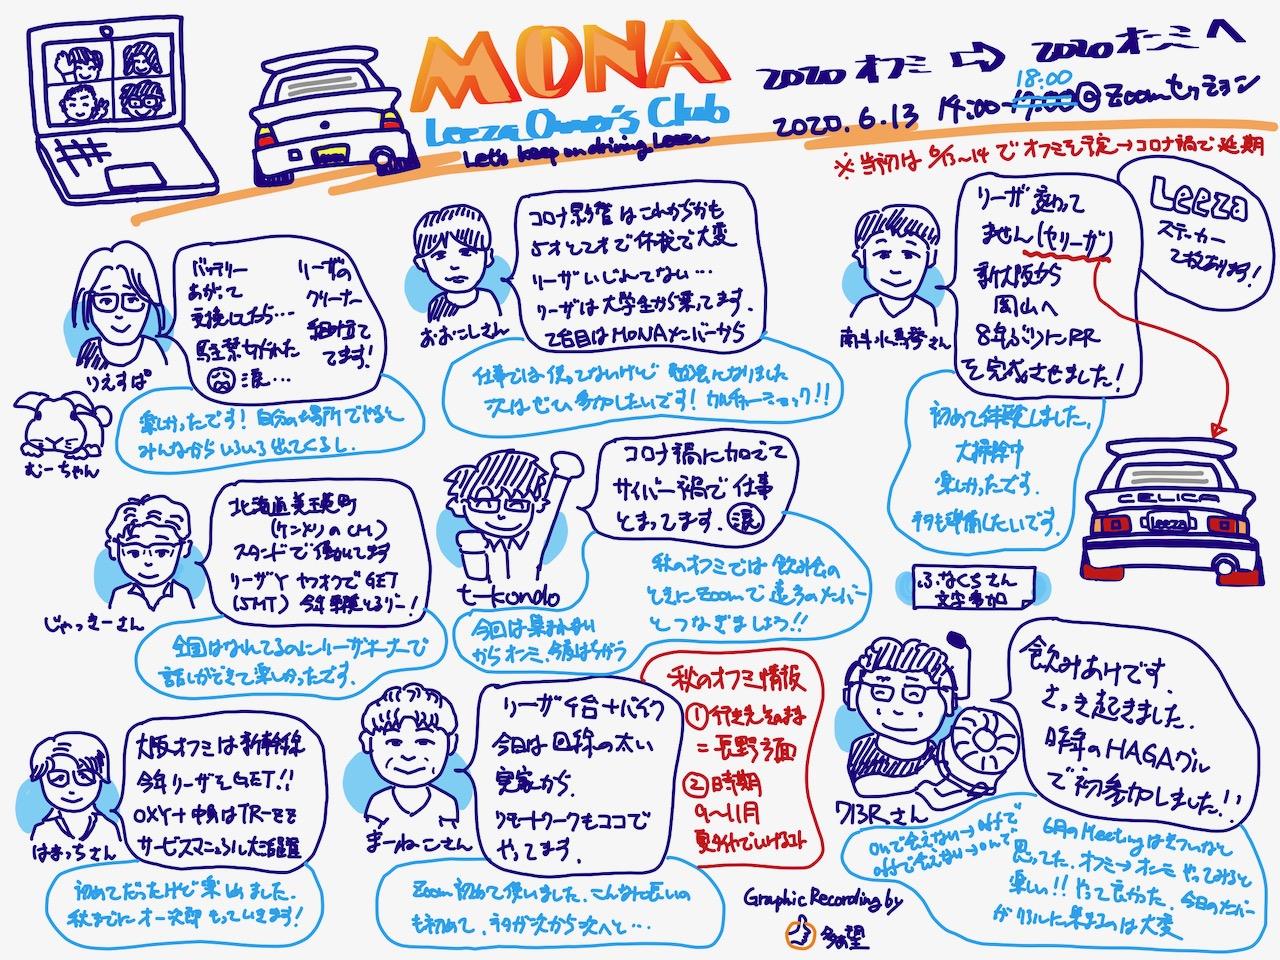 MONA
Leeza Owner's Club
Let's keep on driving Leeza
2020 オフミ ⇨ 2020 オンミへ
18:00
2020.6.13 14:00-17:00 @Zoomセッション
※当初は6/13~14でオフミを予定→コロナ禍で延期
バッテリー
あがって
交換したら…
駐禁切られた
涙…
リーザの
クリーナー
組み立て
てます!
りえすぱ
むーちゃん
楽しかったです!自分の場所でやると
みんなからいろいろ出てくるし.
コロナ影響はこれからかも
5才と2才で休校で大変
リーザいじれてない…
リーザは大学生から乗ってます.
2台目はMONAメンバーから
おおにしさん
仕事では使ってないけど 勉強になりました
次はぜひ参加したいです!カルチャーショック!!
リーザ変わって
ません(ヤリーザ)
新大阪から
岡山へ
8年ぶりにRR
を完成させました!
Leeza
ステッカー
て枚あります!
南斗水鳥拳さん
初めて体験しました.
大掃除中
楽しかったです.
ネタも準備したいです.
CELICA
Leeza
北海道美瑛町
(ケンメリのCM)
スタンドで働いてます
リーザY ヤフオクでGET
(5MT) 今年車検とるぞー!
じゃっきーさん
全国はなれてるのにリーザオーナーで
話しができて楽しかったです.
コロナ禍に加えて
サイバー禍で仕事
とまってます.涙
t-kondo
秋のオフミでは飲み会の
ときにZoomで遠方のメンバー
とつなぎましょう!!
今回は集まれない
からオンミ.今度はちがう
ふなくらさん
文字参加
大阪オフミは新幹線
今年リーザをGET!!
サービスマニュアル大活躍
はまっちさん
初めてだったけど楽しめました.
秋までにオー次郎もっていきます!
リーザ1台+バイク
今日は回線の太い
実家から.
リモートワークもココで
やってます.
まーねこさん
Zoom初めて使いました.こんなに長いの
も初めて.ネタが次から次へと…
秋のオフミ情報
①行き先そのまま
=長野方面
②時期
9~11月
飲みあけです.
さっき起きました.
昨年のHAGAグル
で初参加しました!!
713Rさん
onで会えない→offで
offで会えない→onで
6月のMeetingはきついなと
思ってた.オフミ→オンミやってみると
楽しい!!やって良かった.今日のメンバー
がリアルに集まるのは大変
Graphic Recording by
多望